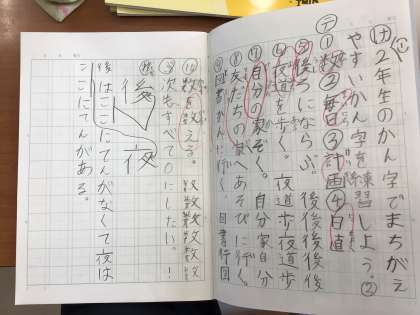 ㋘2年生のかん字でまちがえ
やすいかん字を練習しよう。②
㋢
①数②毎日③計画④日直
⑤後ろにならぶ。後後後後後
⑥夜道を歩く。夜道歩夜道歩
⑦自分の家 自分家自分
⑧友だちの家へあそびに行く。
⑨図書かんに行く。図書行図
⑩数を える。数数数数数
次もすべて〇にしたい。!
後 夜
後はここにてんがなくて夜は
ここにてんがある。